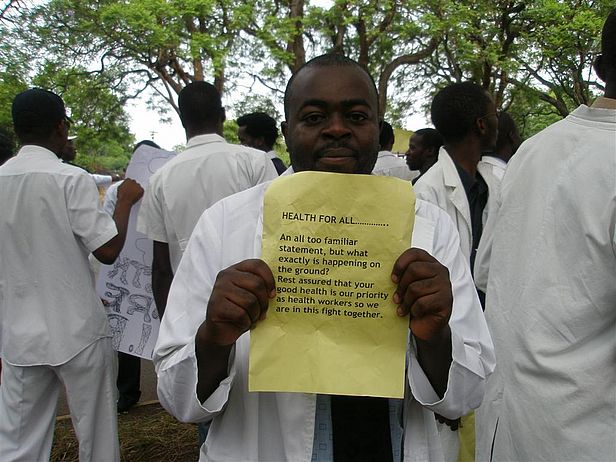 HEALTH FOR ALL..............
An all too familiar
statement, but what
exactly is happening on
the ground?
Rest assured that your
good health is our priority
as health workers so we
are in this fight together.